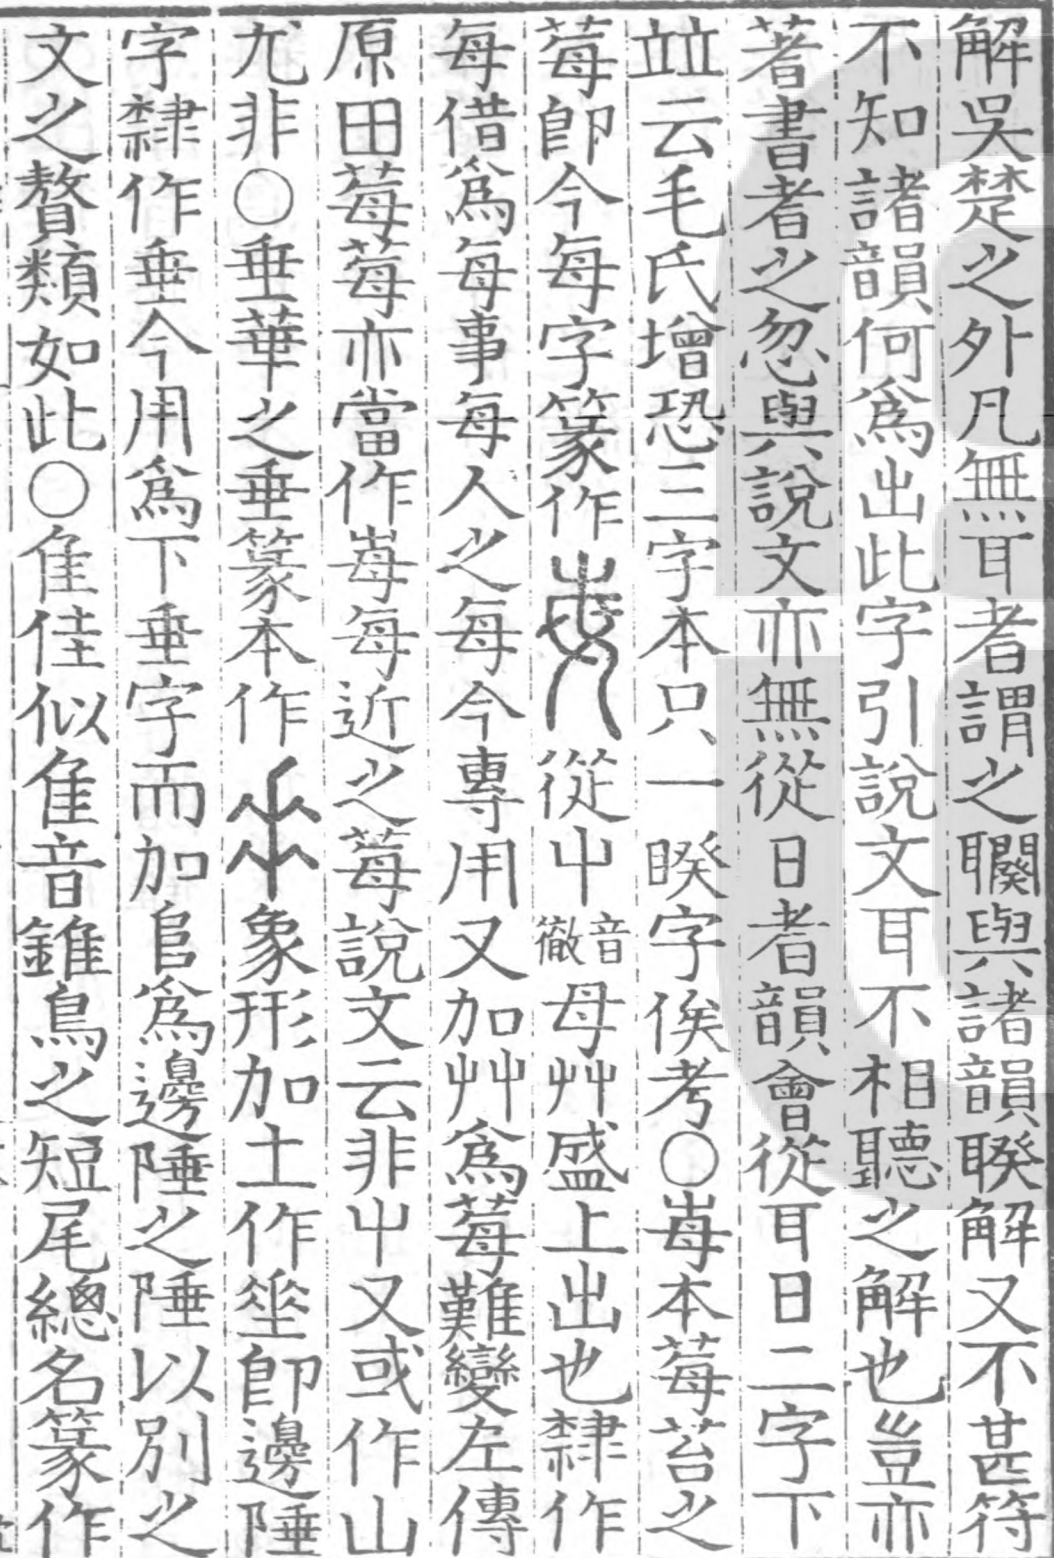 解吳楚之外凡無耳者謂之𦗖與諸韻聧解又不甚符
不知諸韻何爲出此字引說文耳不相聽之解也豈亦
著書者之忽與說文亦無從日者韻會從耳日二字下
竝云毛氏增恐三字本只一睽字俟考○每本莓苔之
莓卽今每字篆作從屮音徹母艸盛上出也隸作
每借爲每事每人之每今專用又加艸爲莓難變左傳
原田莓莓亦當作每每近之莓說文云非屮又或作山
尤非○垂華之垂篆本作象形加土作坙卽邊陲
字隸作垂今用爲下垂字而加𨸏爲邊陲之陲以別之
文之贅類如此○隹佳似隹音錐鳥之短尾總名篆作